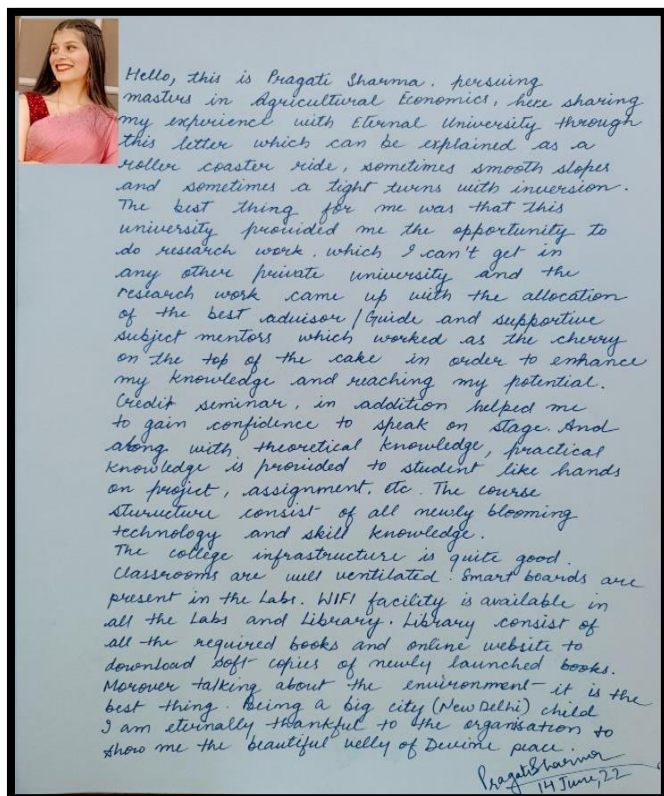 Hello, this is Pragati Sharma. persuing
masters in Agricultural Economics, here sharing
my experience with Eternal University through
this letter which can be explained as a
roller coaster ride, sometimes smooth slopes
and sometimes a tight turns with inversion.
The best thing for me was that this
university provided me the opportunity to
do research work, which I can't get in
any other private university and the
research work came up with the allocation
of the best advisor/Guide and supportive
subject mentors which worked as the cherry
on the top of the cake in order to enhance
my knowledge and reaching my potential.
Credit seminar, in addition helped me
to gain confidence to speak on stage. And
along with theoretical knowledge, practical
knowledge is provided to student like hands
on project, assignment, etc. The course
sturucture consist of all newly blooming
technology and skill knowledge.
The college infrastructure is quite good.
Classrooms are well ventilated. Smart boards are
present in the Labs. WIFI facility is available in
all the Labs and Library. Library consist of
all the required books and online website to
download soft copies of newly launched books.
Morover talking about the environment - it is the
best thing. Being a big city (New Delhi) child
I am eternally thankful to the organisation to
show me the beautiful velly of Devine peace.
Pragati Sharma
14 June, 22